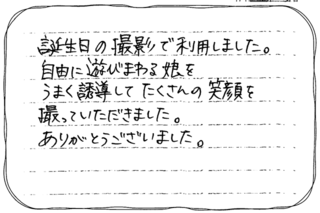 誕生日の撮影で利用しました。
自由に遊びまわる娘を
うまく誘導してたくさんの笑顔を
撮っていただきました。
ありがとうございました。